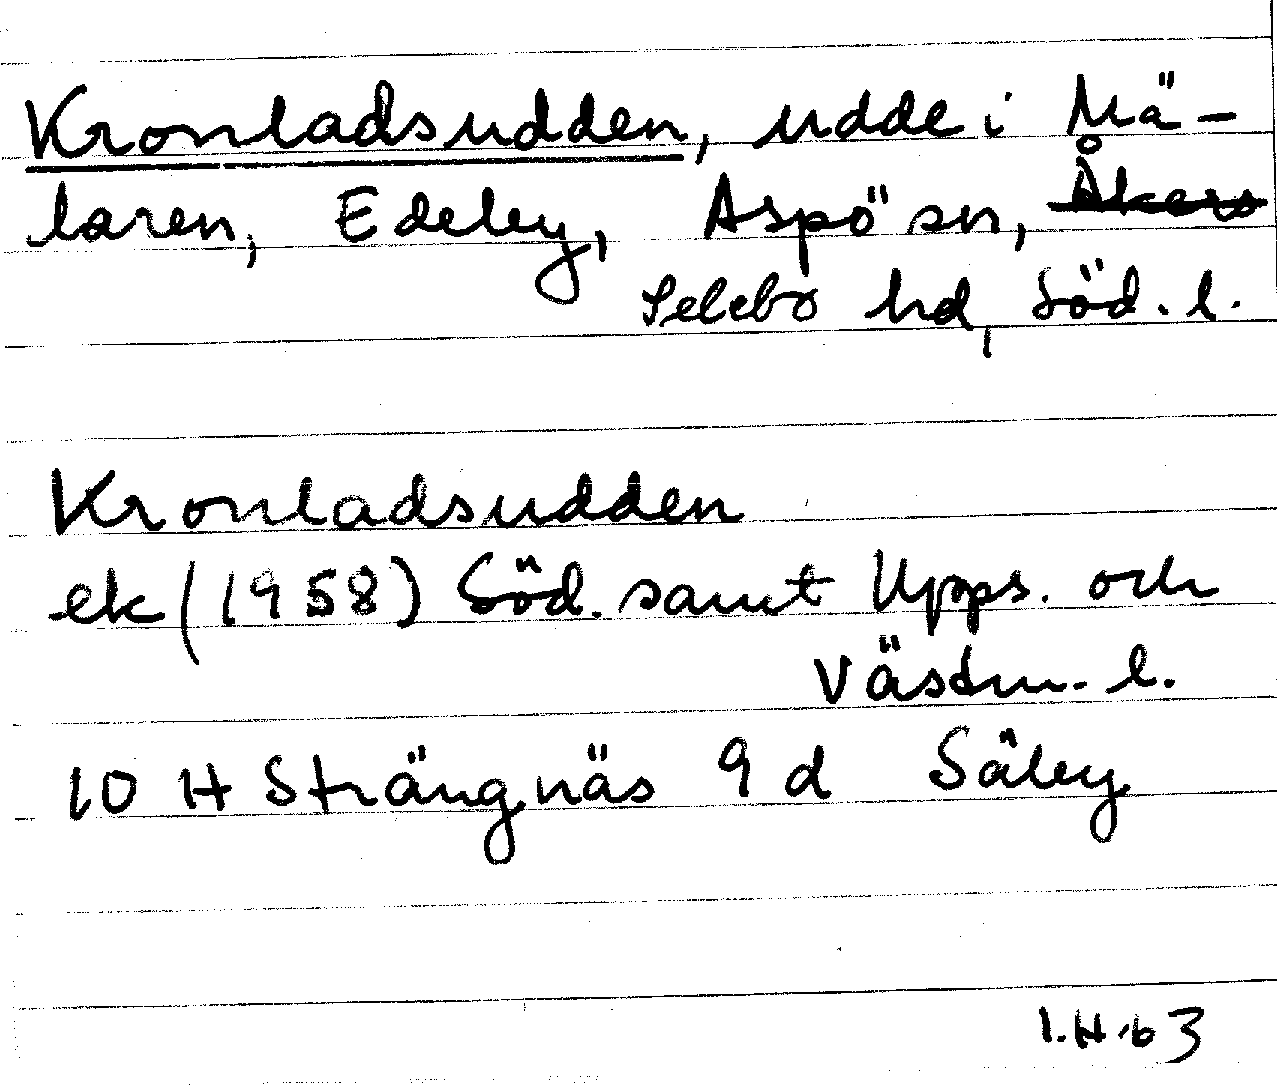 Kronladsudden, udde i Mä-
laren, Edeley, Aspö sn, Åkers
Selebo hd, Söd. l.
Kronladsudden
ek (1958) Söd. samt Upps. och
Västm. l.
10 H Strängnäs 9 d Säley
I.H. 63